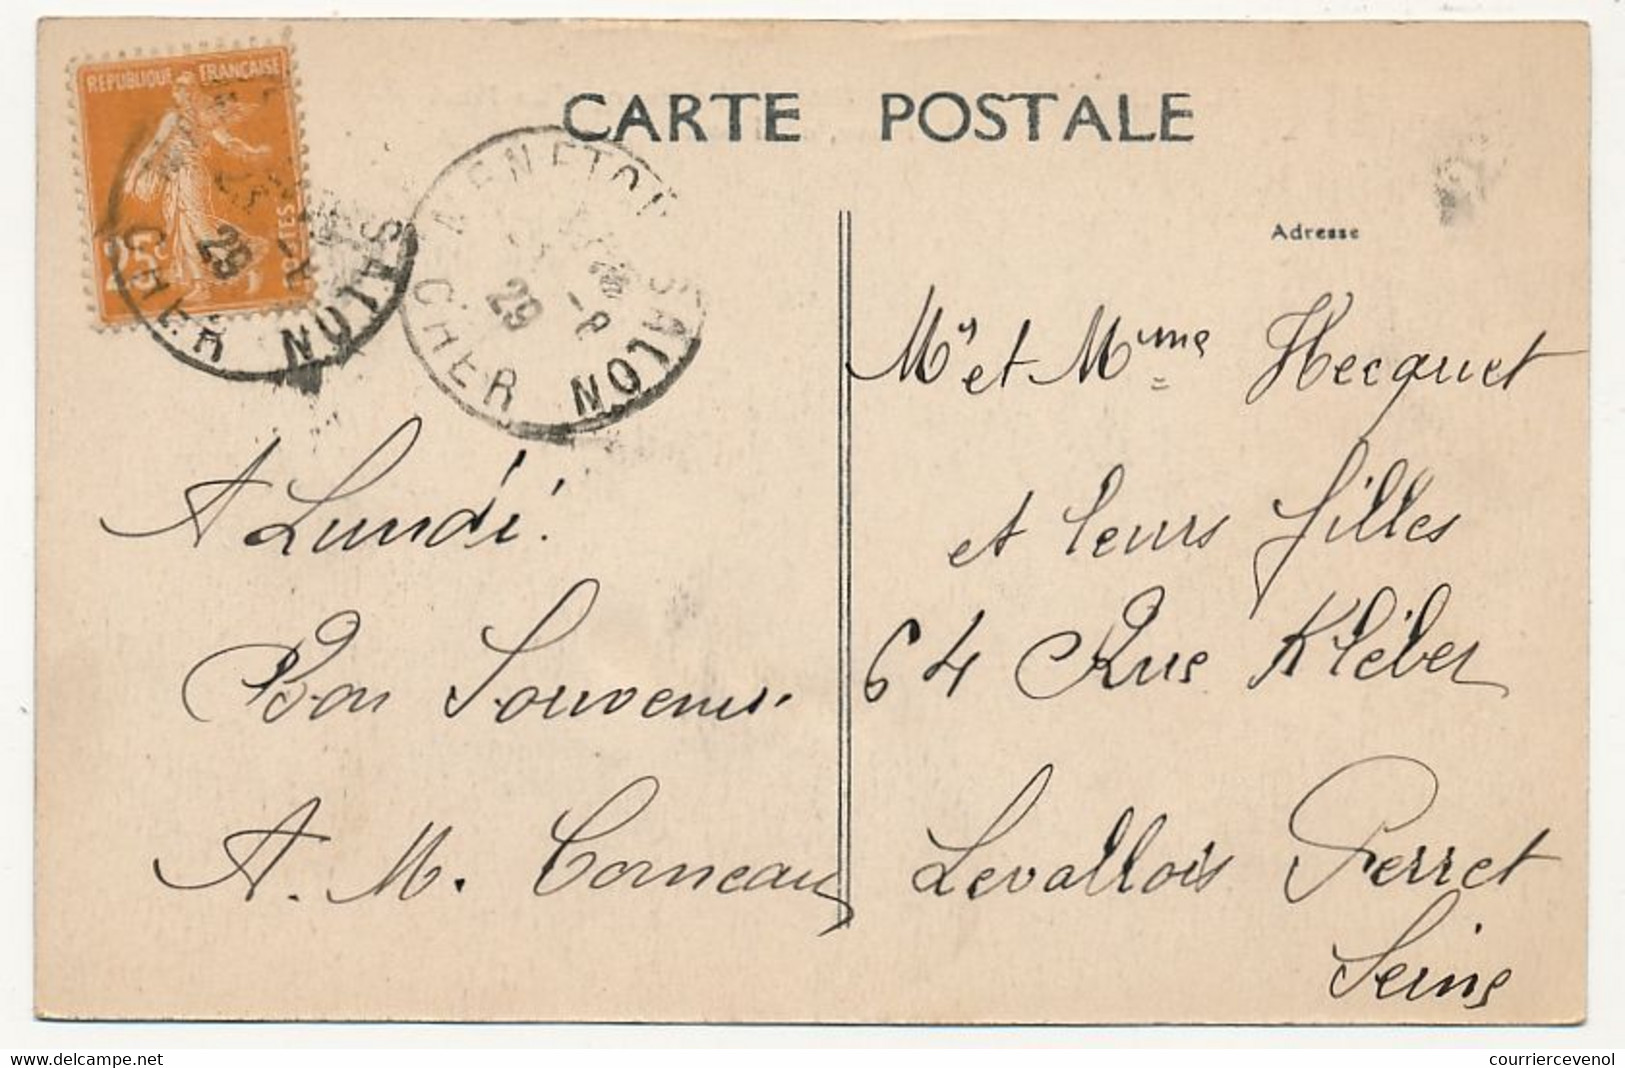 REPUBLIQUE FRANÇAISE
25c
CARTE POSTALE
SALON
CHER
29
SALON
CHER
29
-8
Adresse
Mr et Mme Hecquet
et leurs filles
64 Rue Kléber
Levallois Perret
Seine
A Lundi!
Bon Souvenir
A. M. Corneau
delcampe.net
courriercevenol